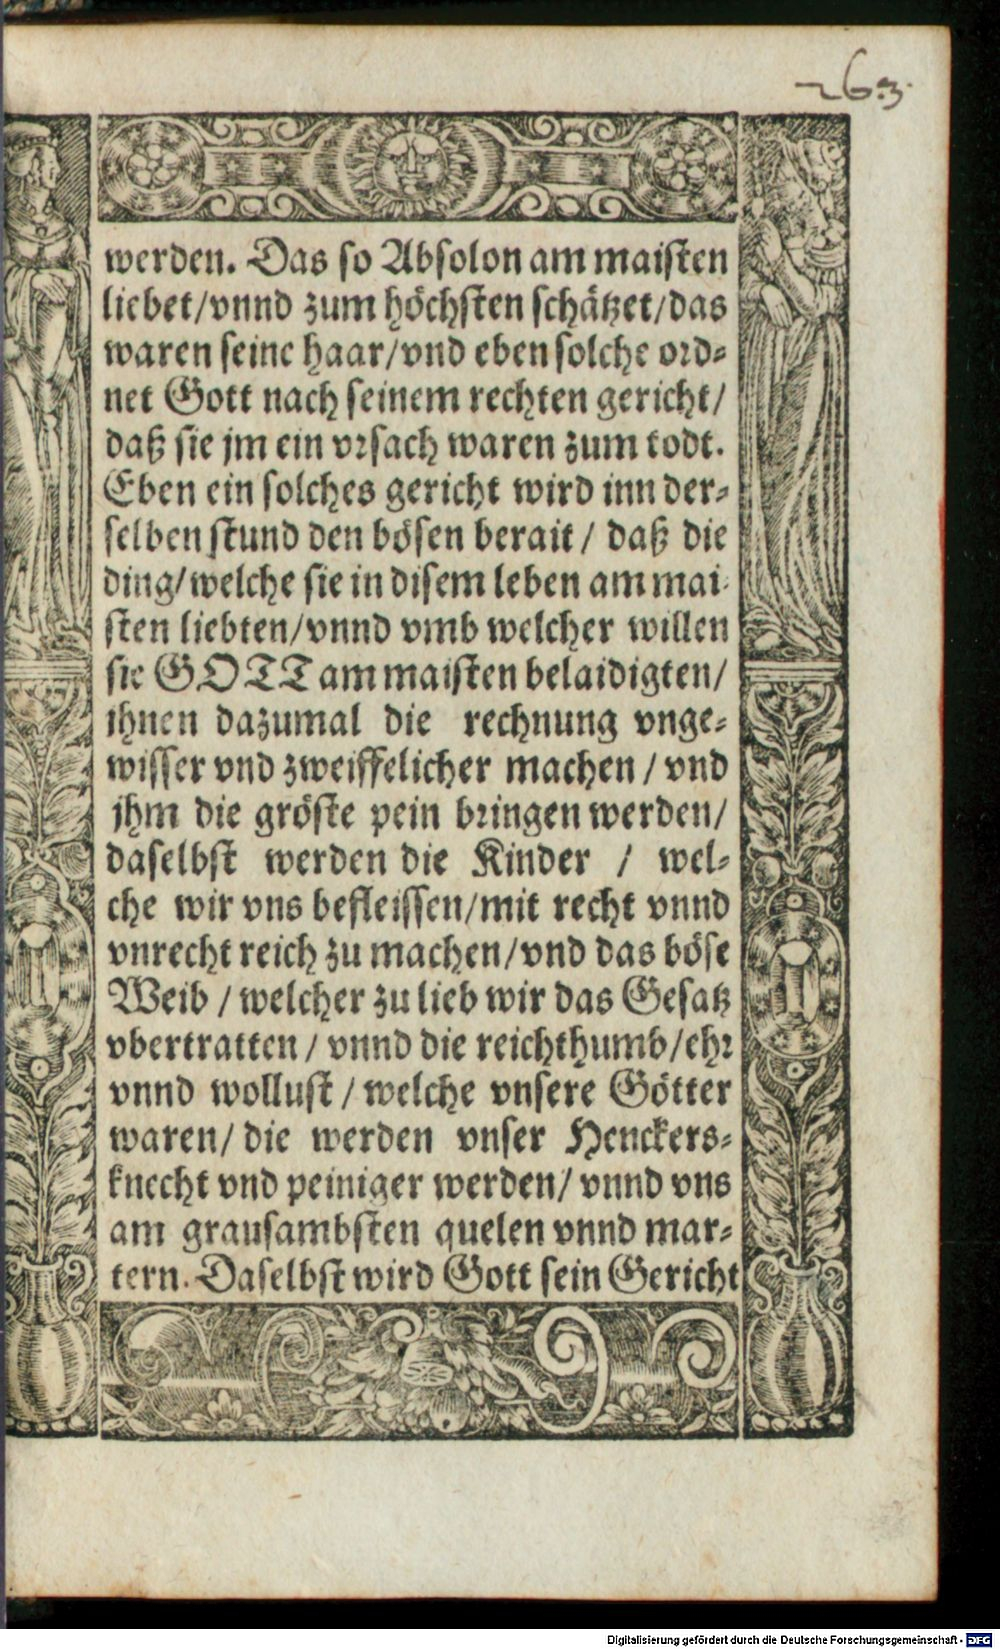 263.
werden. Das so Absolon am maisten
liebet/vnnd zum höchsten schätzet/das
waren seine haar/vnd eben solche ord-
net Gott nach seinem rechten gericht/
daß sie jm ein vrsach waren zum todt.
Eben ein solches gericht wird inn der-
selben stund den bösen berait/ daß die
ding/welche sie in disem leben am mai-
sten liebten/vnnd vmb welcher willen
sie GOTT am maisten belaidigten/
ihnen dazumal die rechnung vnge-
wisser vnd zweiffelicher machen/vnd
jhm die gröste pein bringen werden/
daselbst werden die Kinder / wel-
che wir vns befleissen/mit recht vnnd
vnrecht reich zu machen/vnd das böse
Weib/welcher zu lieb wir das Gesatz
vbertratten/vnnd die reichthumb/ehr
vnnd wollust/welche vnsere Götter
waren/die werden vnser Henckers-
knecht vnd peiniger werden/vnnd vns
am grausambsten quelen vnnd mar-
tern. Daselbst wird Gott sein Gericht
Digitalisierung gefördert durch die Deutsche Forschungsgemeinschaft - DFG